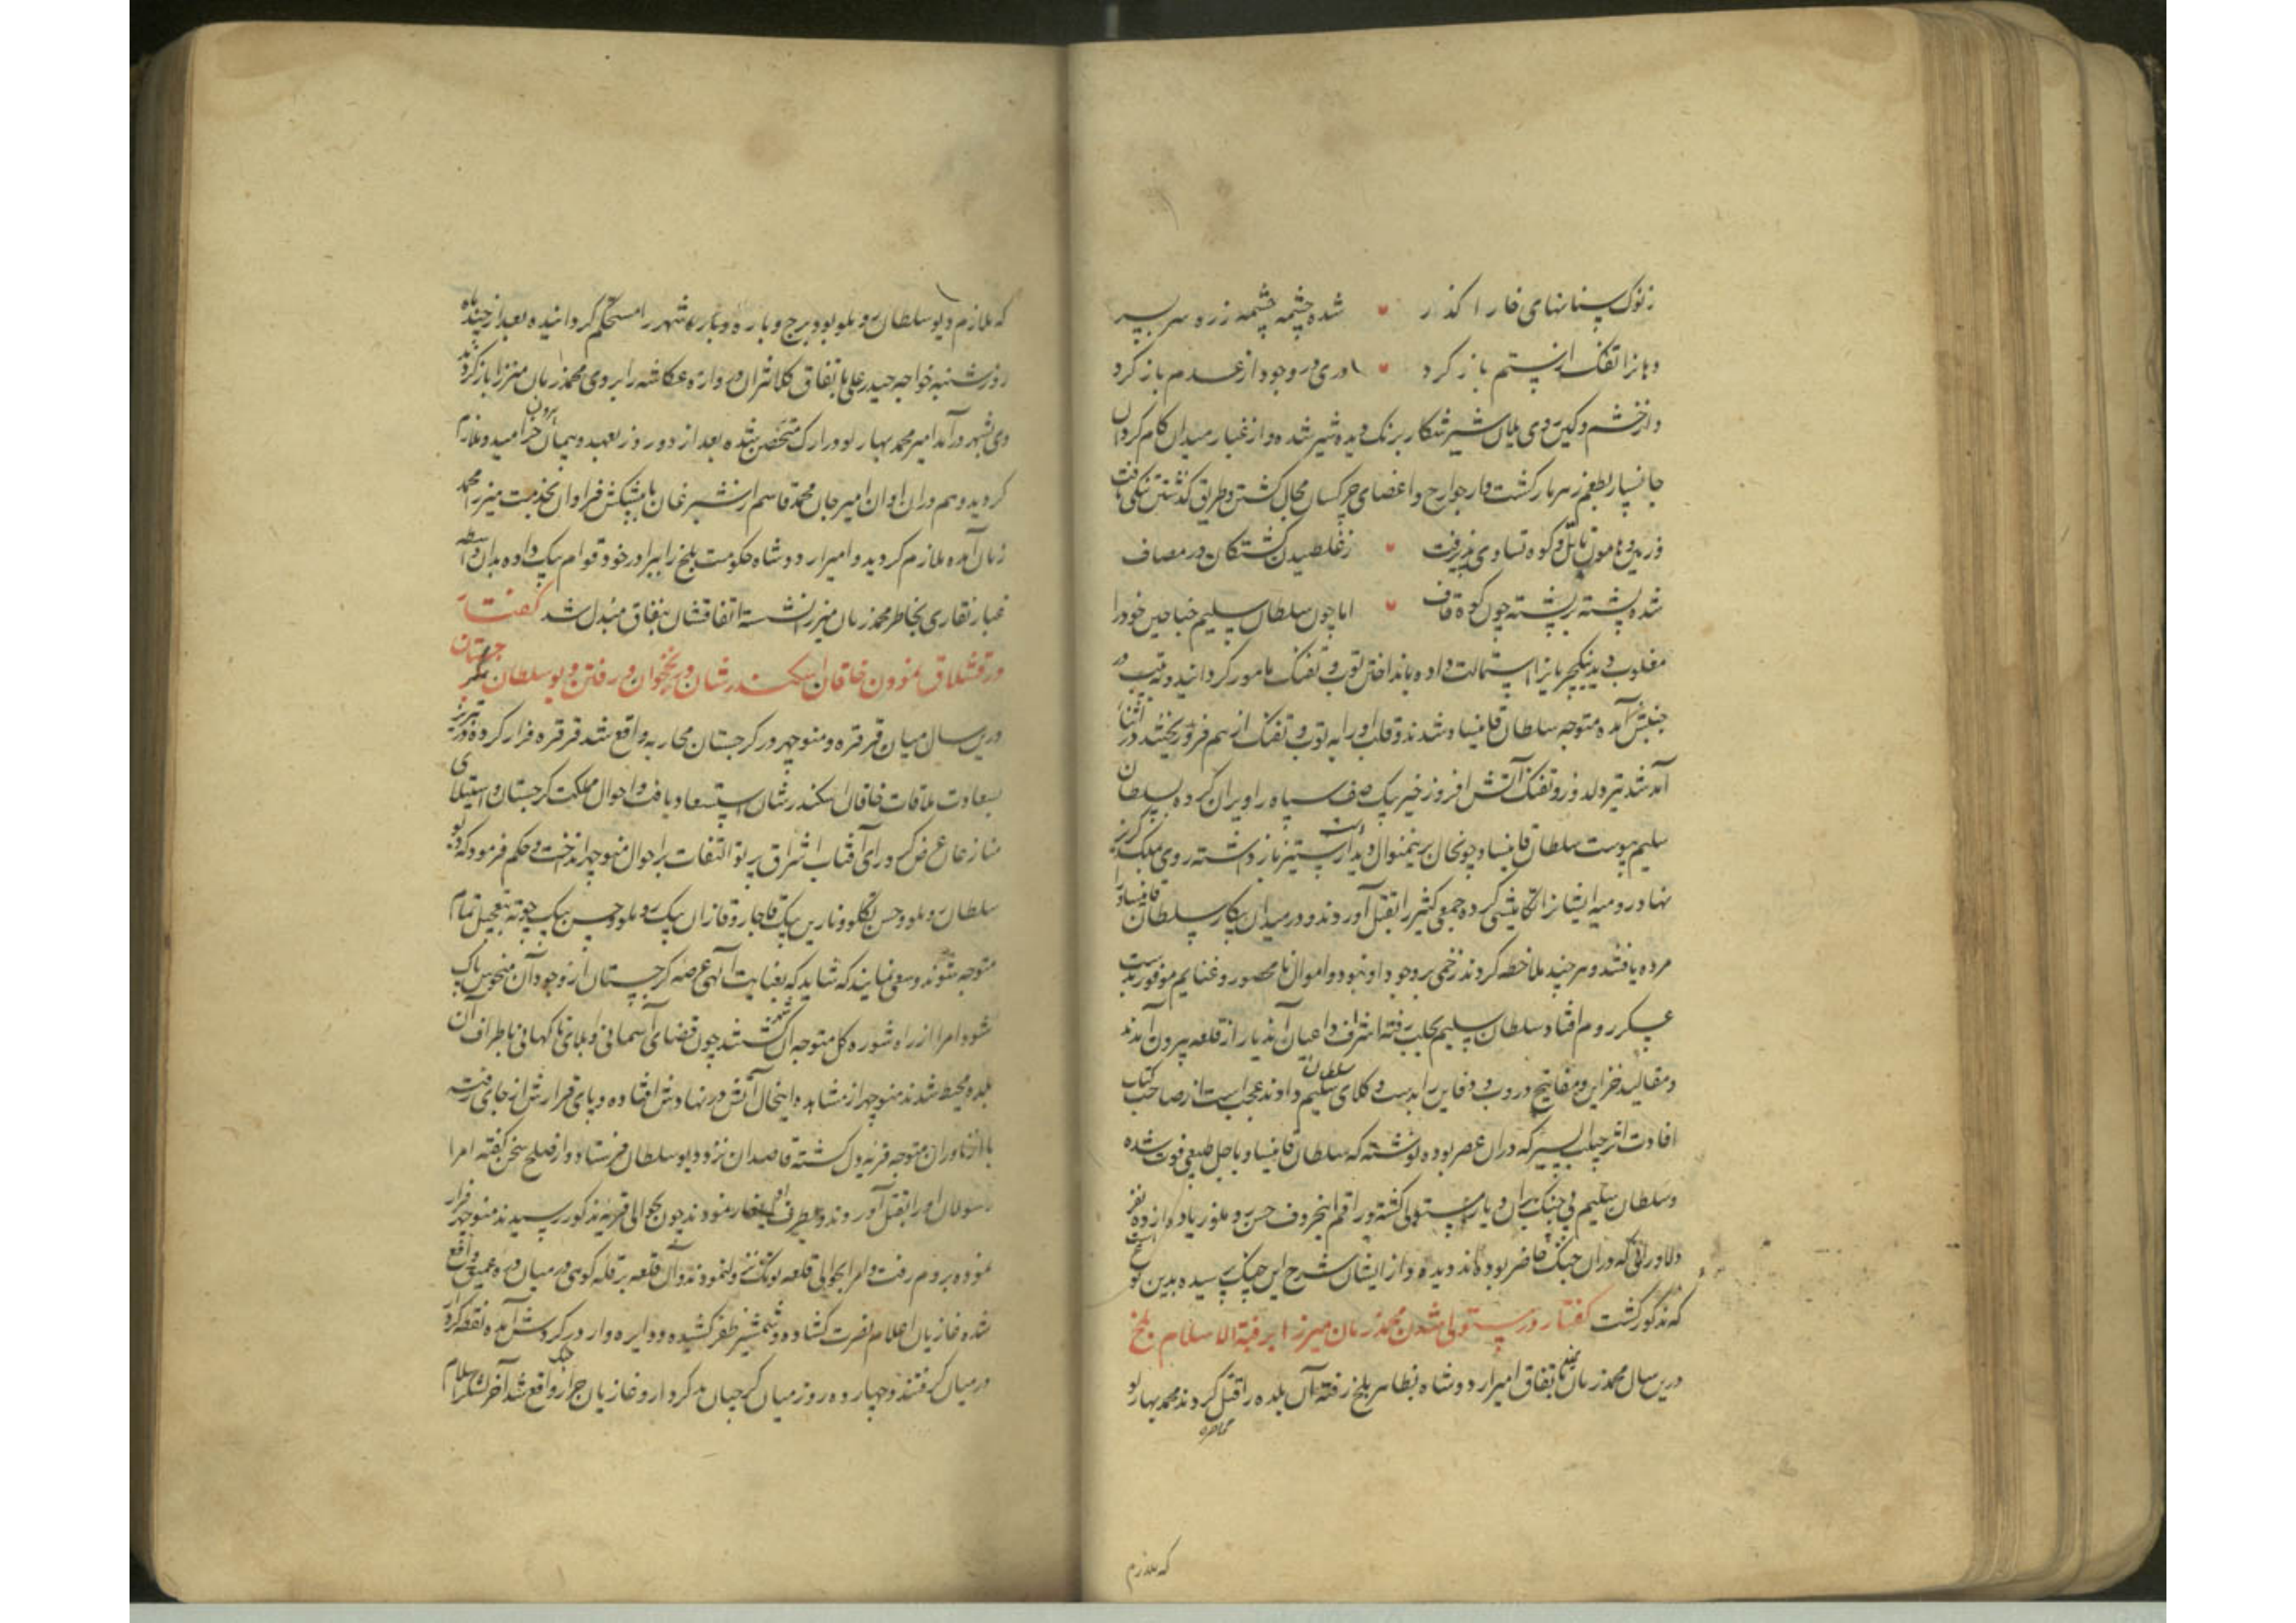 ز نوک سنانهای خارا گذار شده چشمه چشمه زره سر بسر
دهان را تفنک از ستم باز کرد دری در وجود از عدم باز کرد
و از خشم و کین روی یلان شیر شکار برنک دیده شیر شده و از غبار میدان کام کردان
جانسپار بطعم زهر مار کشت و از جوارح و اعضای چرکسان مجال کشتن و طریق کذشتن تنکی یافت
در و هامون با تل و کوه تساوی پذیرفت ز غلطیدن کشتکان در مصاف
شده پشته بر پشته چون کوه قاف اما چون سلطان سلیم جناحین خود را
مغلوب دید ینکچریانرا استمالت داده بانداختن توپ و تفنک مامور کردانید و نیب در
جنبش آمده متوجه سلطان قانیساو شدند و قلب او را به توپ و تفنک از هم فرو ریختند در اثنای
آمد شد تیر دلدوز و تفنک آتش افروز خیر بیک صف سپاه را ویران کرده بسلطان
سلیم پیوست سلطان قانیساو چون حال برینمنوال دید از ستیز باز داشته روی بملک کریز
نهاد رومیه ایشانرا تکامیشی کرده جمعی کثیر را بقتل آوردند و در میدان پیکار سلطان قانیساو را
مرده یافتند و هر چند ملاحظه کردند زخمی بر وجود او نبود و اموال نامحصور و غنایم موفور بدست
عسکر روم افتاد سلطان سلیم بحلب رفته اشراف و اعیان آندیار از قلعه بیرون آمدند
و مقالید خزاین و مفاتیح دروب و دفاین را بدست وکلای سلطان سلیم دادند عجب است از صاحب کتاب
افادت اثر حبیب السیر که در آن عصر بوده نوشته که سلطان قانیساو باجل طبیعی فوت شده
و سلطان سلیم بی جنک بر آن دیار مستولی کشته و راقم اینحروف حسن روملو زیاده از ده نفر
دلاورانی که در آن جنک حاضر بوده اند دیده و از ایشان شرح این جنک پرسیده بدین نوع است
که مذکور گشت گفتار در مستولی شدن محمد زمان میرزا بر قبة الاسلام بلخ
درین سال محمد زمان میرزا باتفاق امیر اردوشاه بظاهر بلخ رفته آن بلده را قبل کردند محمد بهارلو
محاصره
که ملازم
که ملازم دیو سلطان روملو بود برج و باره و شهر را مستحکم کردانیده بعد از چند ماه
روز شنبه خواجه حیدر علی باتفاق کلانتران دروازه عکاشه را بروی محمد زمان میرزا باز کردند
وی بشهر در آمد امیر محمد بهارلو در ارک متحصن شده بعد از دو روز بعهد و پیمان بیرون خرامید و ملازم
کردید و هم در آن اوان امیر جان محمد قاسم از شبرغان با پیشکش فراوان بخدمت میرزا محمد
زمان آمده ملازم کردید و امیر اردوشاه حکومت بلخ را ببرادر خود قوام بیک داده بدان واسطه
غبار نقاری بخاطر محمد زمان میرزا نشسته اتفاقشان بنفاق مبدل شد کفتار
در قشلاق نمودن خاقان اسکندر شان در نخجوان و رفتن دیو سلطان بکرجستان
درین سال میان قرقره و منوچهر در کرجستان محاربه واقع شد قرقره فرار کرده در تبریز
بسعادت ملاقات خاقان اسکندر شان استسعاد یافت و احوال مملکت کرجستان و استیلای
منازعان عرض کرد رای آفتاب اشراق پرتو التفات بر احوال منوچهر انداخت و حکم فرمود که دیو
سلطان روملو و حسن بیگ و نارین بیک قاجار و قازان بیک روملو و حسن بیک چوته بتعجیل تمام
متوجه شوند و سعی نمایند که شاید که بعنایت الهی عرصه کرجستان از وجود آن منحوس پاک
شود امرا از راه شوره کل متوجه آن کشتند چون قضای آسمانی و بلای ناکهانی باطراف آن
بلده محیط شدند منوچهر از مشاهده اینحال آتش در نهادش افتاده و پای قرارش از جای رفته
با ازناوران متوجه قریه دل کشته قاصدان نزد دیو سلطان فرستاد و از صلح سخن کفته امرا
رسولان او را بقتل آوردند و بطرف او ایلغار نمودند چون بحوالی قریه مذکور رسیدند منوچهر فرار
نموده بروم رفت و امرا بحوالی قلعه نزول نمودند و آن قلعه بر قله کوهی در میان دره عمیق واقع
شده غازیان اعلام نصرت کشاده و شمشیر ظفر کشیده و دایره وار در کردش آمده نقطه کردار
در میان کرفتند و چهارده روز میان کرجیان بد کردار و غازیان جرار جنک واقع شد آخر لشکر اسلام